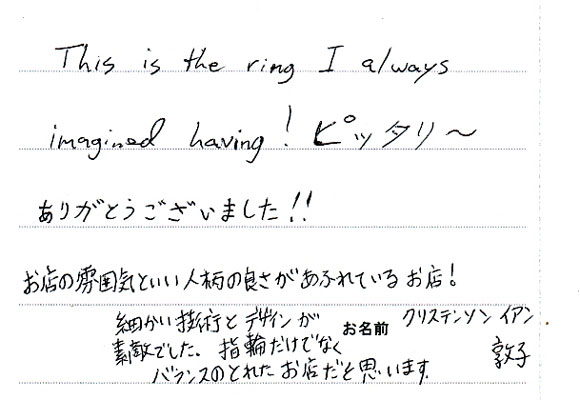 This is the ring I always
imagined having! ピッタリ〜
ありがとうございました!!
お店の雰囲気といい人柄の良さがあふれているお店!
細かい技術とデザインが
素敵でした。指輪だけでなく
バランスのとれたお店だと思います。
お名前 クリステンソン イアン
敦子